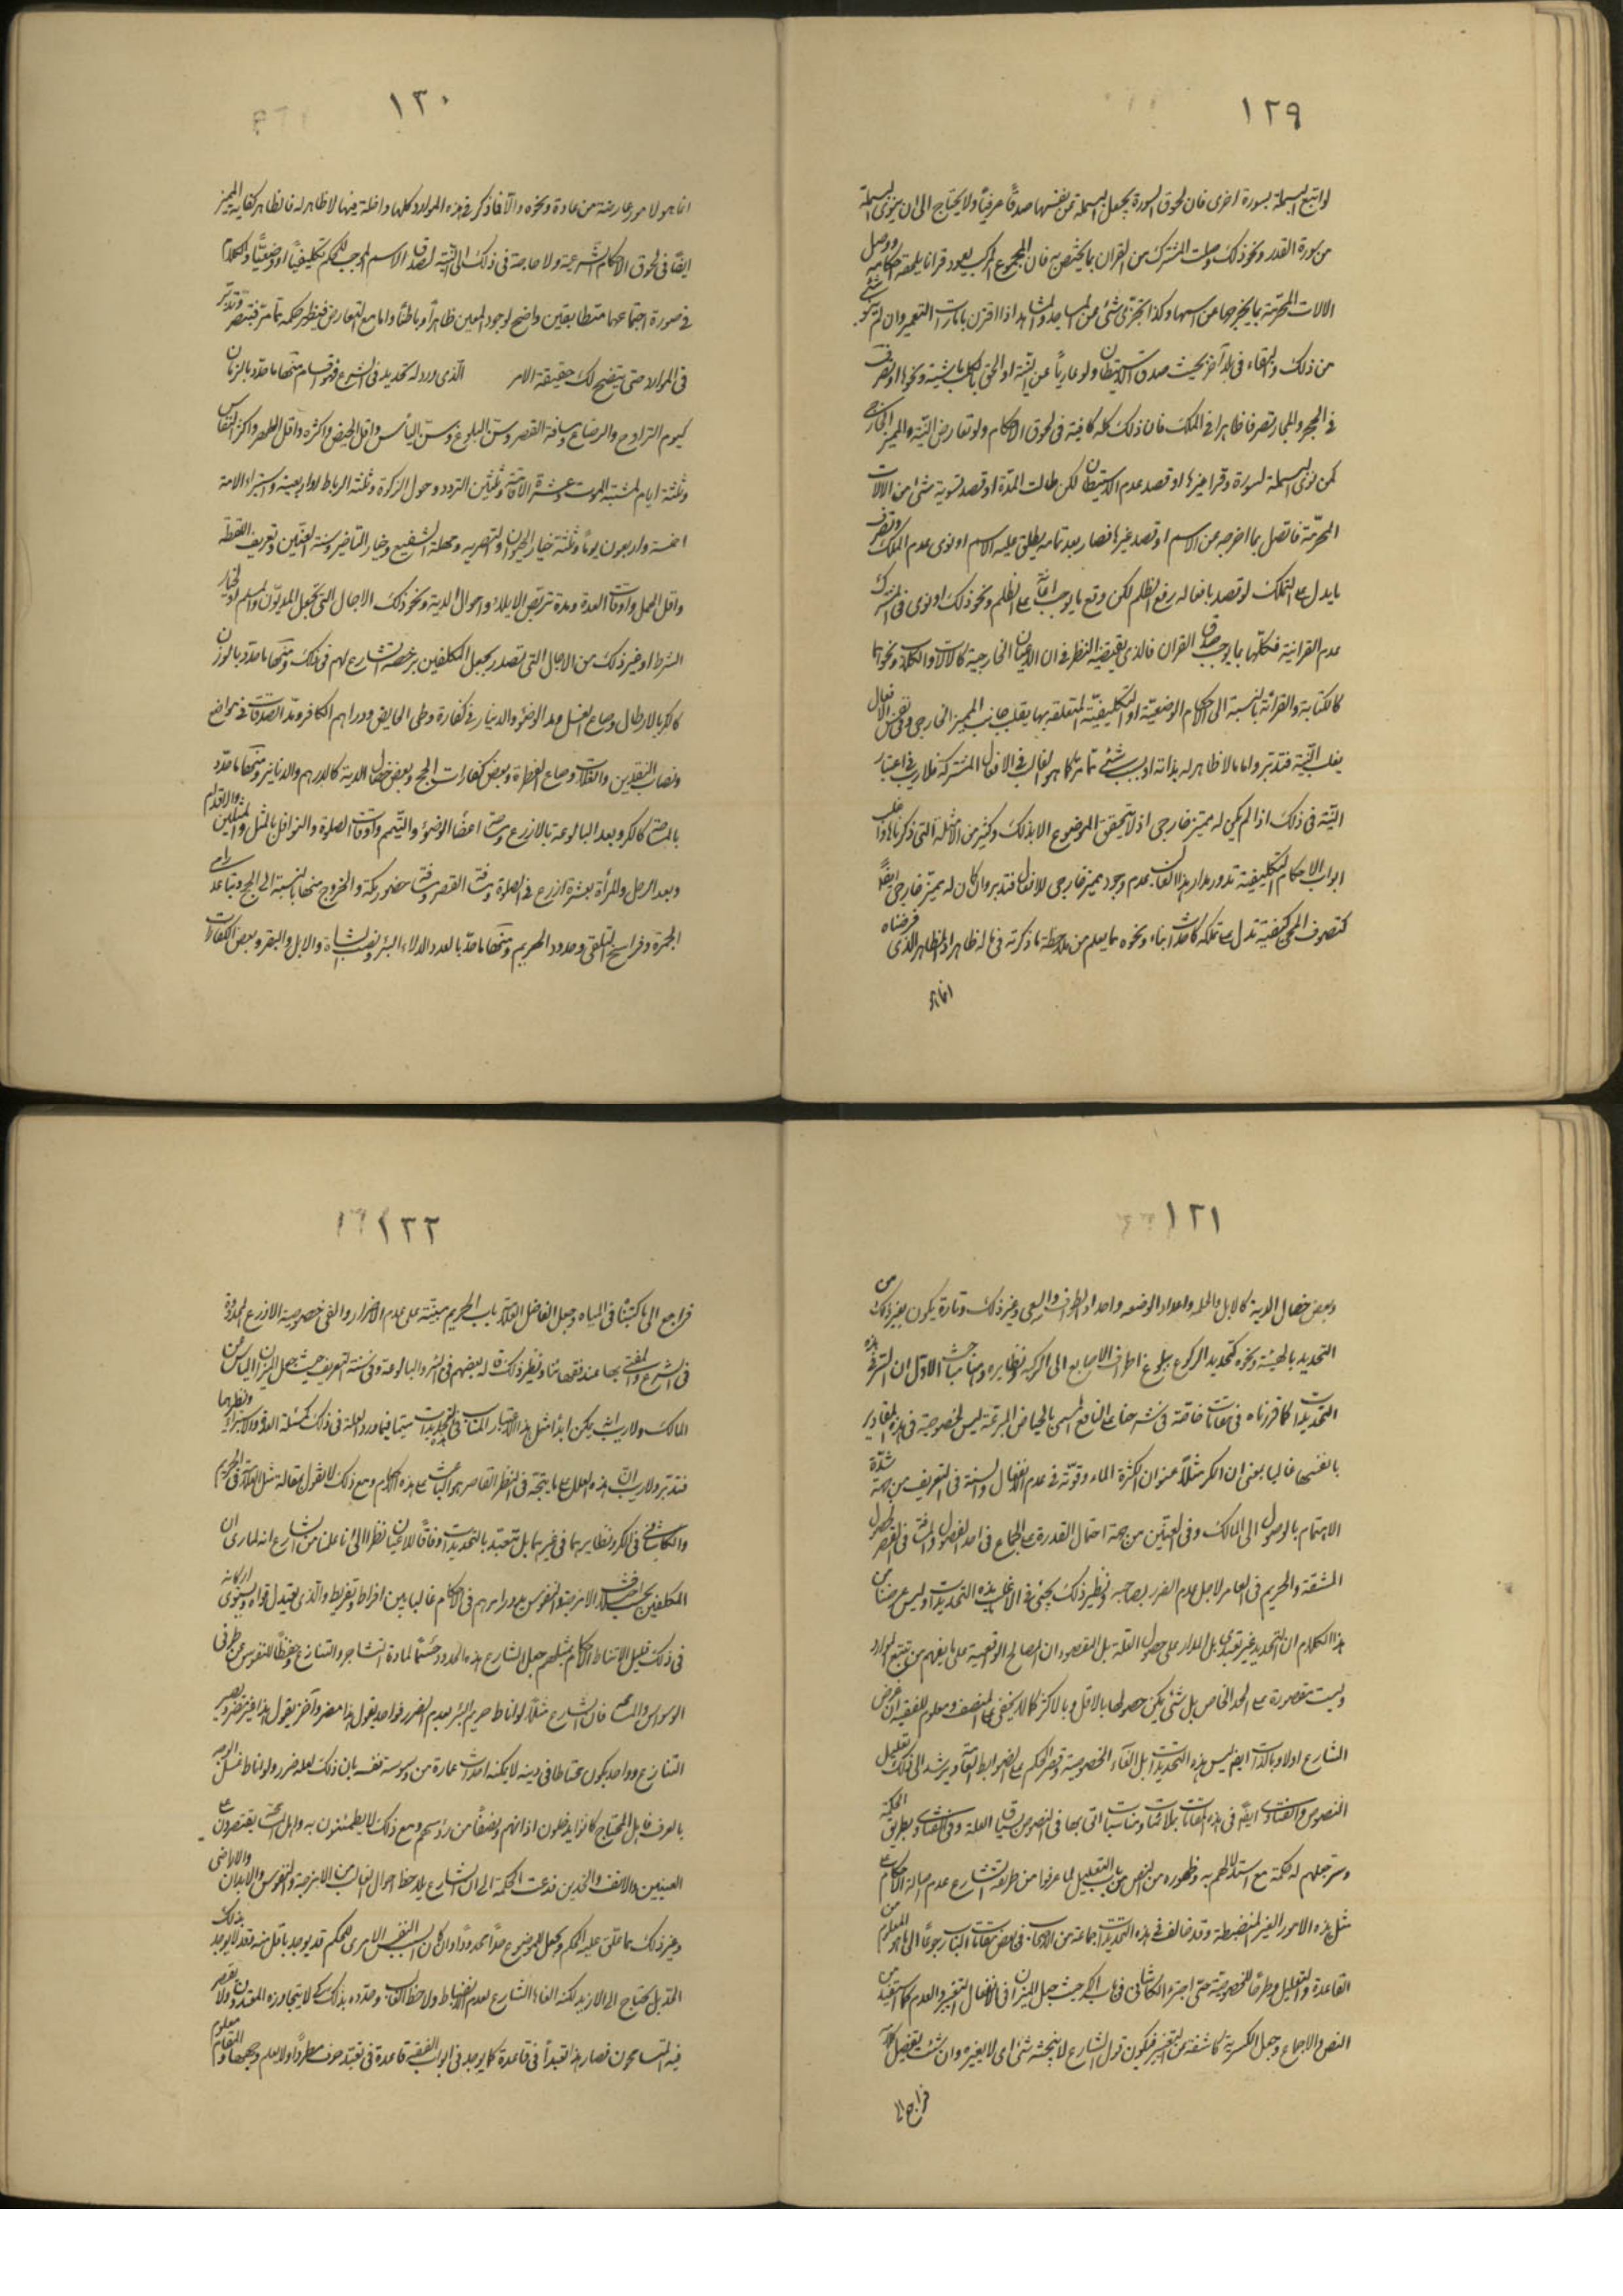 ١٢٩
لو اتبع البسملة بسورة اخرى فان لحوق السورة يجعل البسملة من نفسها صدقًا عرفيًا ولا يحتاج الى ان ينوى البسملة
من سورة القدر ونحو ذلك وصلت المشترك من القران بما يختص به فان المجموع المركب يعود قرانا يلحقه احكامه ووصل
الالات المحرمة بما يخرجها عن اسمها وكذا تجزى شئ من المساجد والمشاهد اذا اقترن بامارات التعمير وان لم ينو شئ
من ذلك والبقاء فى بلد آخر بحيث صدق الاستيطان ولو عاريًا عن النية او الحق بالكلب ماشية ونحوها او تصرف
فى المجر والمجاز تصرفا ظاهرا فى الملك فان ذلك كله كافية فى لحوق الاحكام ولو تعارض النية والمميز الخارجى
كمن نوى البسملة لسورة وقرا غيرها او قصد عدم الاستيطان لكن طالت المدة او قصد تسوية شئ من الالات
المحرمة فاتصل بما اخرجه من الاسم او قصد غيرها فصار بعد تمامه يطلق عليه الاسم او نوى عدم الملك وتصرف
بما يدل على التملك او قصد بافعاله رفع الظلم لكن وقع ما يوجب اعانة على الظلم ونحو ذلك او نوى فى المشترك
عدم القرانية فكلها بما يوجب صدق القران فالذى يقتضيه النظر فى ان الاعيان الخارجية كالالات والكلاب ونحوها
كالكتابة والقرائة بالنسبة الى الاحكام الوضعية او التكليفية المتعلقة بها يغلب جانب المميز الخارجى وفى نفس الافعال
يغلب النية فتدبر واما ما لا ظاهر له بذاته او بسبب شئ تاثر كما هو الغالب فى الافعال المشتركة فلا ريب فى اعتبار
النية فى ذلك اذا لم يكن له مميز خارجى اذ لا يتحقق الموضوع الا بذلك وكثير من الامثلة التى ذكرناها وا غلب
ابواب الاحكام التكليفية تدور مدار هذا لغلبة عدم وجود مميز خارجى للافعال فتدبر وان كان له مميز خارجى ايضًا
كتصرف المحى كيفية تدل على تملكه كاحداث بناء ونحوه مما يعلم من ملاحظة ما ذكرته فى ما له ظاهر اذ الظاهر الذى فرضناه
انما هو
١٣٠
انما هو لامور عارضة من عادة ونحوه والا فما ذكر فى هذه الموارد كلها داخلة فيما لا ظاهر له فالظاهر كفاية المميز
ايضًا فى لحوق الاحكام الشرعية ولا حاجة فى ذلك الى النية لصدق الاسم الموجب للحكم تكليفيًا او وضعيًا والكلام
فى صورة اجتماعهما متطابقين واضح لوجود المعين ظاهرًا وباطنًا واما مع التعارض فيظهر حكمه مما مر فتبصر وتدبر
فى الموارد حتى يتضح لك حقيقة الامر الذى ورد له تحديد فى الشرع فهو اقسام منها ما حدد بالزمان
كيوم التراوح والرضاع ومسافة القصر وسن البلوغ وسن اليأس واقل الحيض واكثره واقل الطهر واكثر النفاس
وثلثة ايام لمشتبه الموت وعشرة الاقامة وثلثين التردد وحول الزكوة وثلثة الرباط او اربعينه واستبراء الامة
خمسة واربعون يومًا وثلثة خيار الحيوان والتصرية ومهلة الشفيع وخيار التاخير وسنة العنين وتعريف اللقطة
واقل الحمل واوقات العدة ومدة تربص الايلاء واحوال الدية ونحو ذلك الاجال التى تجعل للديون والسلم او الخيار
الشرط او غير ذلك من الاجال التى تصدر بجعل المكلفين برخصة الشارع لهم فى ذلك ومنها ما حدد بالوزن
كالكر بالارطال وصاع الغسل ومد الوضوء والدينار فى كفارة وطى الحايض ودراهم الكافر ومد الصدقات فى مواضع
ونصاب النقدين والغلات وصاع الفطرة وبعض كفارات الحج وبعض خصال الدية كالدرهم والدنانير ومنها ما حدد
بالمساحة كالكر وبعد البالوعة بالاذرع ومساحة اعضاء الوضوء والتيمم واوقات الصلوة والنوافل بالمثل والمثلين والاقدام
وبعد الرجل والمرأة بعشرة اذرع فى الصلوة ومسافة القصر ومسافة حضور مكة والخروج منها بالنسبة الى الحج وتباعد رامى
الجمرة وفراسخ التلقى وحدود الحريم ومنها ما حد بالعدد كدلاء البئر ونصب الشاة والابل والبقر وبعض الكفارات
١٣١
وبعض خصال الدية كالابل والحلة واعداد الرضعة واعداد الطواف والسعى وغير ذلك وتارة يكون بغير ذلك من
التحديد بالهيئة ونحوه كتحديد الركوع ببلوغ اطراف الاصابع الى الركبة ونظايره وهنا مباحث الاول ان السر فى هذه
التحديدات كما قررناه فى مقامات خاصة فى شرحنا على النافع المسمى بالحياض المترعة ليس لخصوصية فى هذه المقادير
بانفسها غالبا بمعنى ان الكر مثلًا عنوان لكثرة الماء وقوته فى عدم الانفعال والسنة فى التعريف من جهة شدة
الاهتمام بالوصول الى المالك وفى العنين من جهة احتمال القدرة على الجماع فى احد الفصول والمسافة فى القصر لحصول
المشقة والحريم فى العامر لاجل عدم الضرر بصاحبه ونظير ذلك يجيئ فى الاغلب بهذه التحديدات وليس غرضنا من
هذا الكلام ان التحديد غير تعبدى بل المدار على حصول العلة بل المقصود ان المصالح الواقعية على ما يفهم من تتبع الموارد
وليست مقصورة على الحد الخاص بل شئ يمكن حصولها بالاقل وبالاكثر كما لا يخفى على المنصف ومعلوم للفقيه ان غرض
الشارع اولا وبالذات ايضا ليس هذه التحديدات بل القاء الخصوصية وقصر الحكم على الضوابط العامة ويرشد الى ذلك تعليل
النصوص والفتاوى ايضًا فى هذه المقامات بملائمات ومناسبات اتى بها فى النصوص بسياق العلة وفى الفتاوى بطريق الحكمة
وسر جعلهم له حكمة مع استدلالهم به وظهوره من النص من باب التعليل لما عرفوا من طريقة الشارع عدم احالة الاحكام على
مثل هذه الامور الغير المنضبطة وقد خالف فى هذه التحديدات جماعة من الاصحاب فى بعض مقامات الباب رجوعًا الى ما هو المعلوم من
القاعدة والتعليل وطرحًا للخصوصية حتى اجترء الكاشانى فى باب الكر حيث جعل الميزان فى الانفعال التغيير والعدم كما استفيد من
النص والاجماع وجعل الكرية كاشفة عن التغير فيكون قول الشارع لا ينجسه شئ اى لا يغيره وان شئت تفصيل كلامه
فراجع الى
١٣٢
فراجع الى ما كتبناه فى المياه وجعل الفاضل العلامة باب الحريم مبتنية على عدم الاضرار والغى خصوصية الاذرع المحدودة
فى الشرع والمفتى بها عند فقهائنا ونظير ذلك قاله بعضهم فى البئر والبالوعة وفى سنة التعريف حيث جعل الميزان الياس عن
المالك ولا ريب يمكن ابداء مثل هذا الاعتبار المناسب فى التحديدات سيما فيما ورد العلة فى ذلك كمسئلة العدة والاستبراء ونظيرهما
فتدبر ولا ريب ان هذه العلل على ما يتجه فى النظر القاصر هو الباعث على هذه الاحكام ومع ذلك لا نقول بمقالة مثل العلامة فى الحريم
والكاشانى فى الكر ونظايرهما فى غيرهما بل نتعبد بالتحديدات وفاقًا للاعيان نظرا الى انا علمنا من الشارع انه لما راى ان
المكلفين بحسب اختلاف الامزجة والنفوس مع وراءهم فى الاحكام غالبا بين افراط وتفريط والذى يعتدل قواه ويستوى اركانه
فى ذلك قليل الاتناط الاحكام بمثلهم جعل الشارع هذه الحدود حسمًا لمادة التشاجر والتنازع وحفظًا للنفوس عن طرفى
الوسواس والمسامحة فان الشارع مثلًا لو اناط حريم البئر بعدم الضرر فواحد يقول هذا مضر وآخر يقول هذا غير مضر ويصير
التنازع وواحد يكون محتاطا فى دينه لا يمكنه احداث عمارة من وسوسة نفسه بان ذلك لعله ضرر ولو اناط غسل الوجه
بالعرف فاهل الاحتياج كانوا يدخلون اذانهم ونصفًا من رؤسهم ومع ذلك لا يطمئنون به واهل المسامحة يقتصرون على
العينين والانف والخدين فدعت الحكمة الى ان الشارع يلاحظ احوال الغالب من الامزجة والنفوس والابدان والاراضى
وغير ذلك مما علق عليه الحكم ويجعل للموضوع حدًا محدودًا وان كان السبب النفس الامرى للحكم قد يوجد باقل منه وقد لا يوجد بذلك
القدر بل يحتاج الى الازيد لكنه القاها الشارع لعدم الانضباط ولاحظ الغالب وحدده بذلك لكى لا يتجاوزه المعتدون ولا يقصر
فيه المتسامحون فصار هذا تعبدًا فى قاعدة كما يوجد فى ابواب الفقيه قاعدة فى تعبد صرف مطردًا ولا يعلم وجهها والمقام معلوم